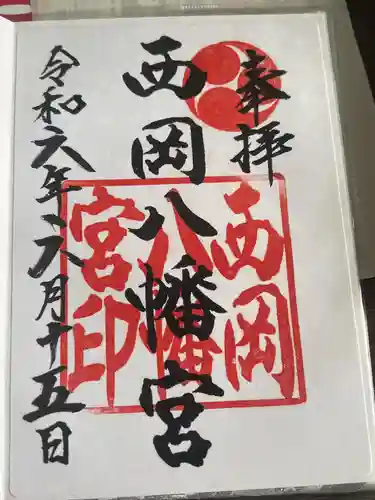 奉拝
西岡八幡宮
西岡八幡宮印
令和六年、六月十五日